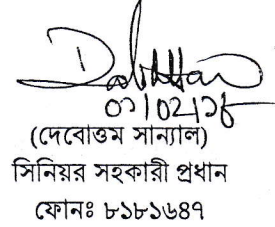 ০৭/০২/১৮
(দেবোত্তম সান্যাল)
সিনিয়র সহকারী প্রধান
ফোনঃ ৮১৮১৬৪৭